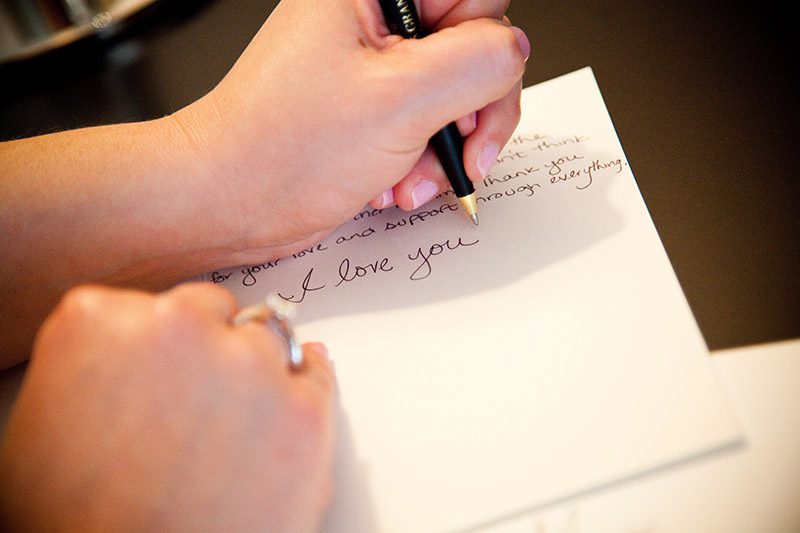 GRAN
the
n't think
Thank you
for your love and support through everything.
I love you